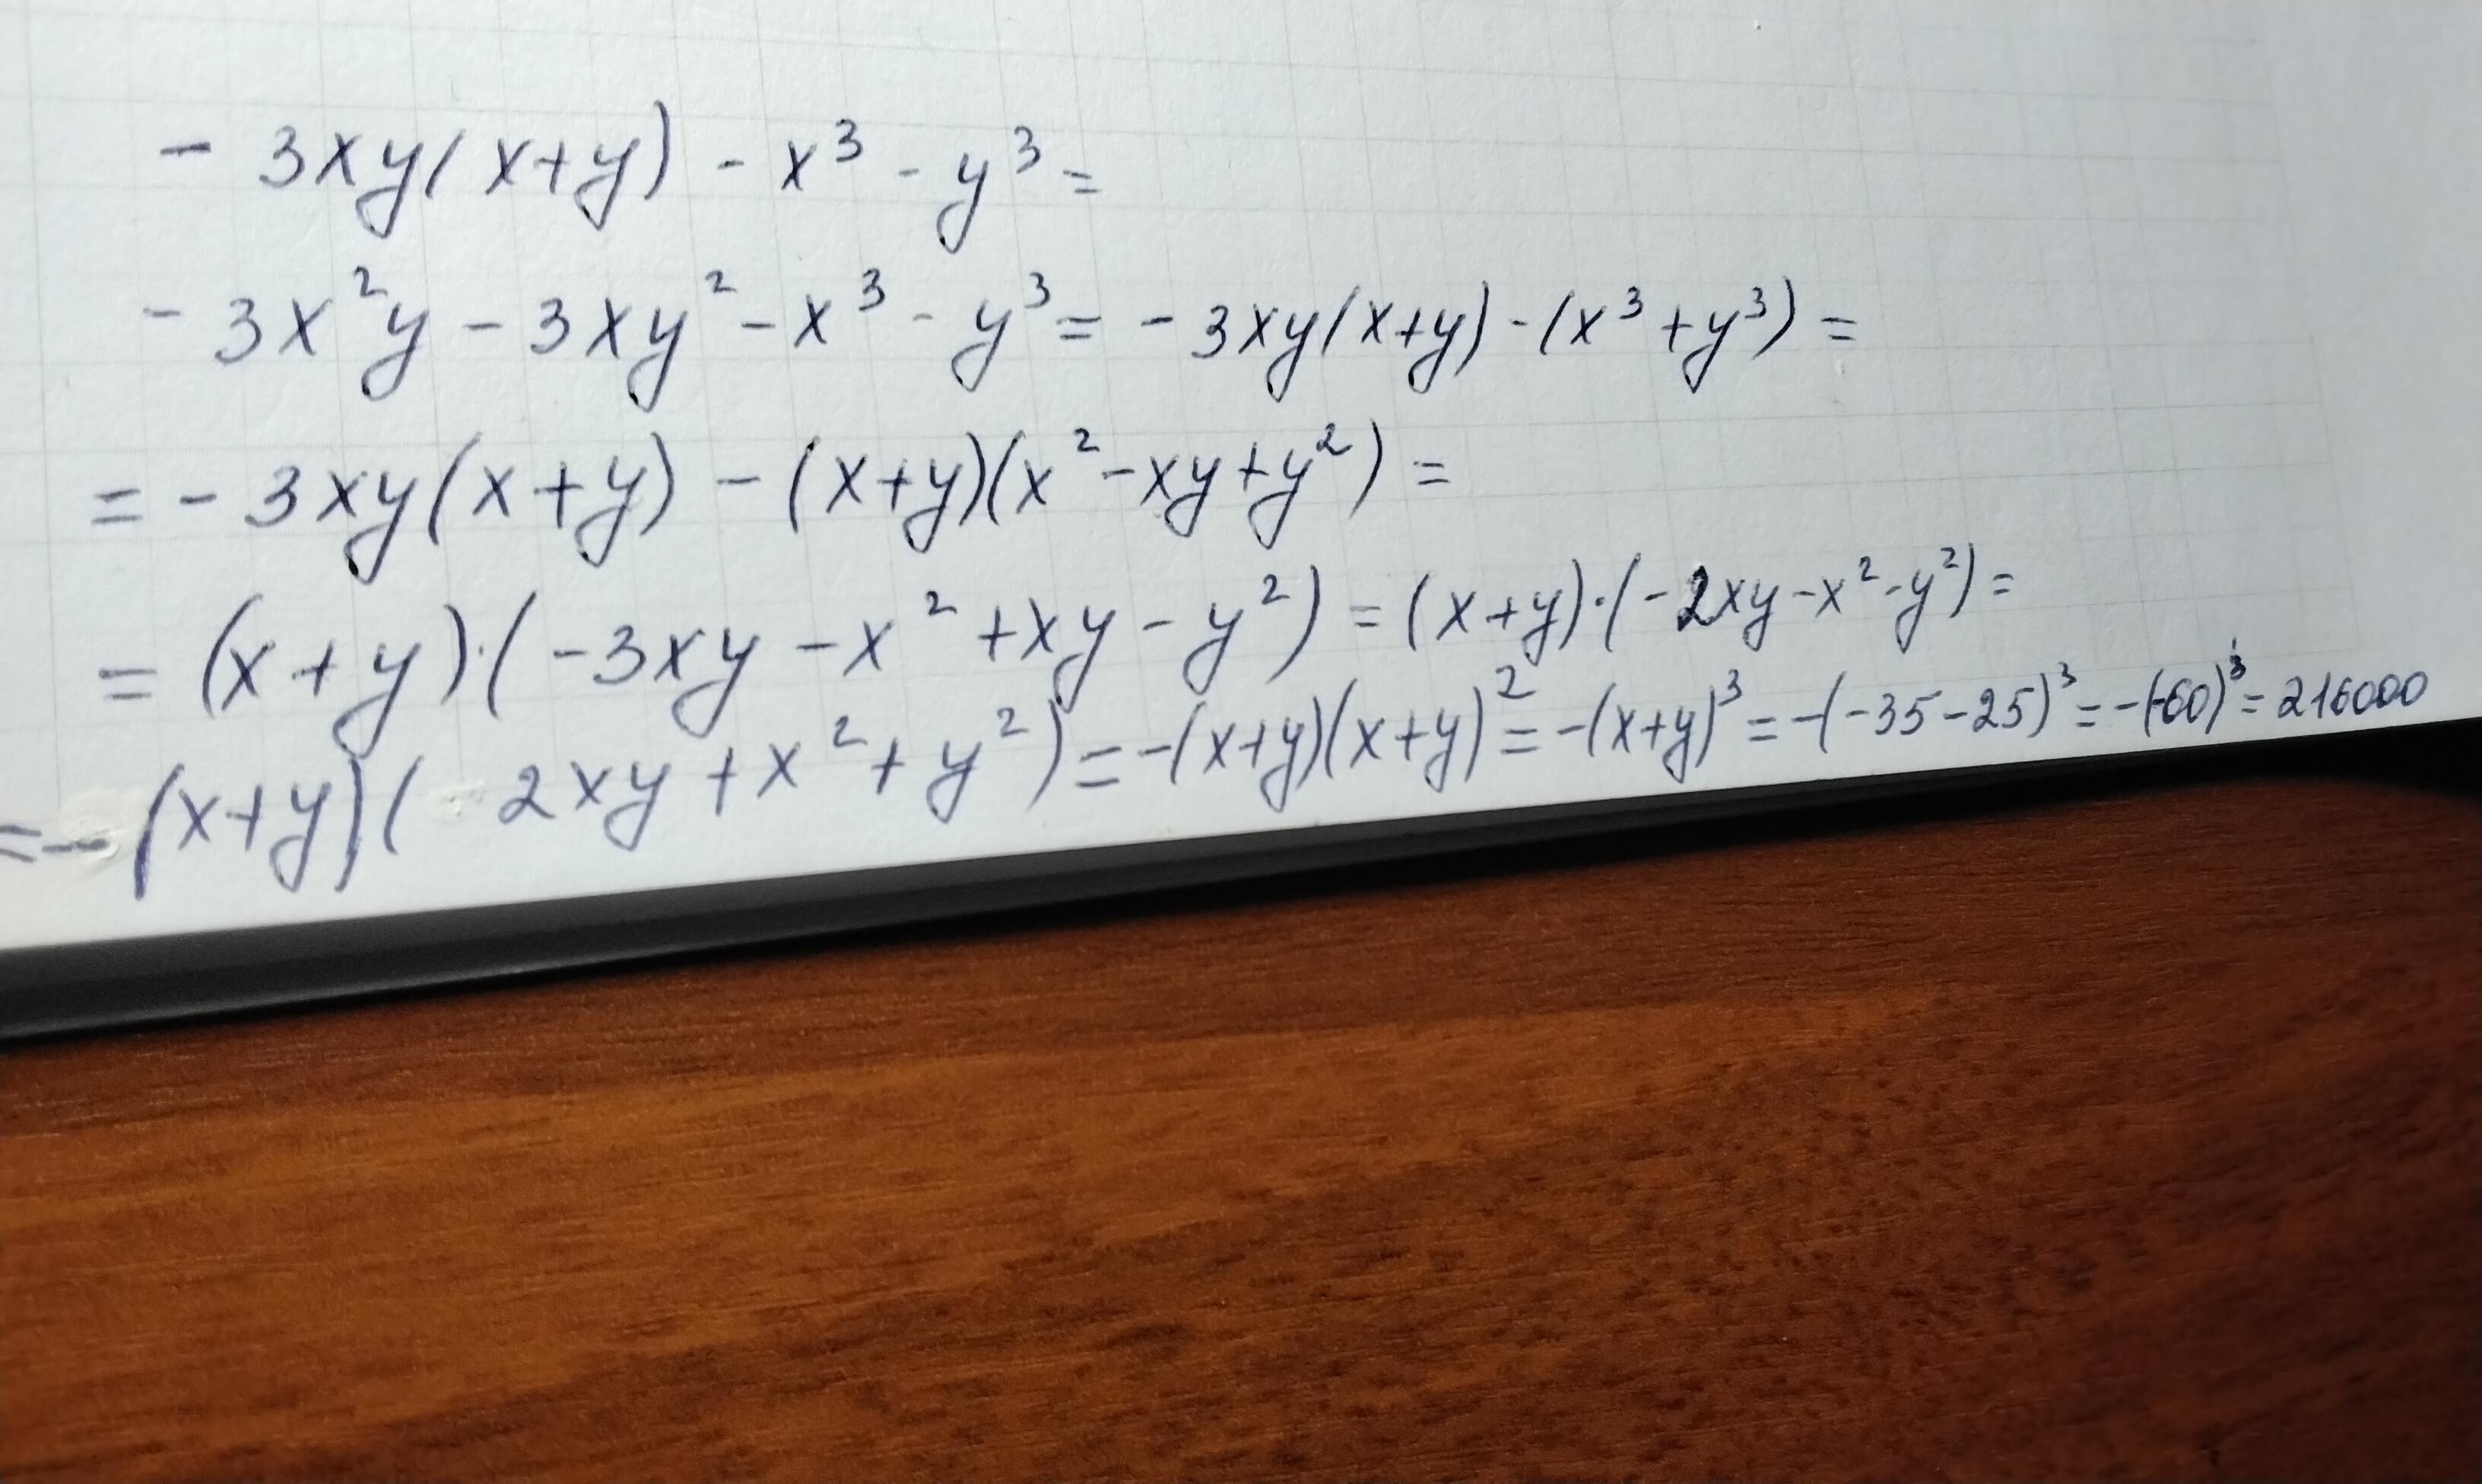 - 3xy(x+y) - x³ - y³ =
- 3x²y - 3xy² - x³ - y³ = - 3xy(x+y) - (x³ + y³) =
= - 3xy(x+y) - (x+y)(x² - xy + y²) =
= (x+y)·(-3xy - x² + xy - y²) = (x+y)·(-2xy - x² - y²) =
= -(x+y)( 2xy + x² + y²) = -(x+y)(x+y)² = -(x+y)³ = -(-35-25)³ = -(-60)³ = 216000